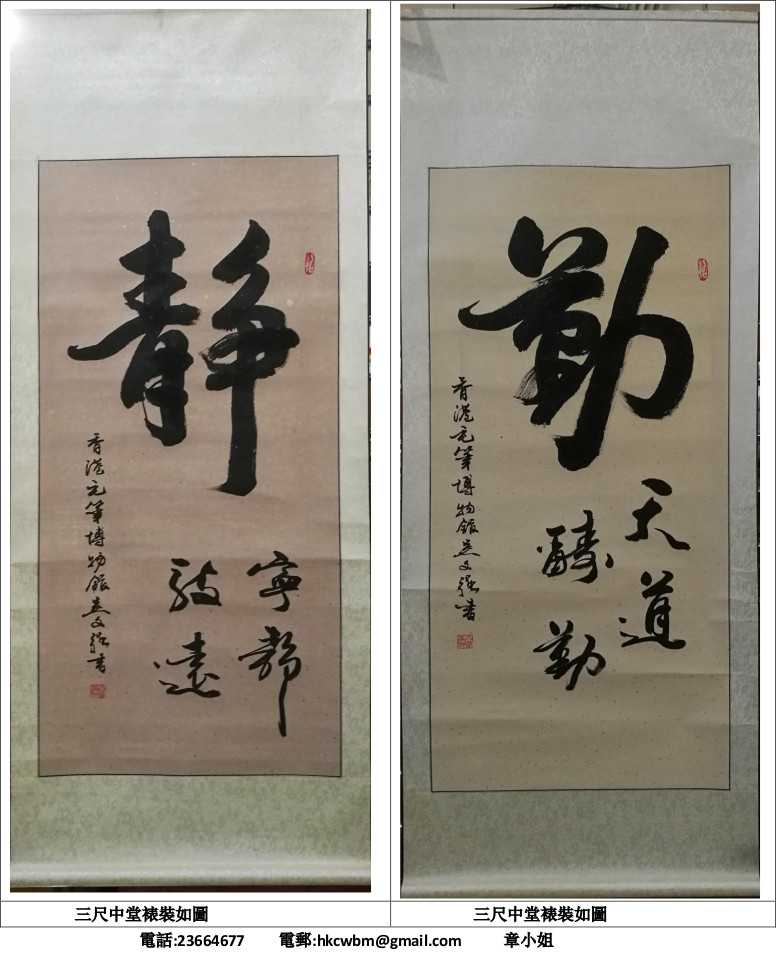 靜
寧靜
致遠
香港毛筆博物館吳文強書
勤
天道
醻勤
香港毛筆博物館吳文強書
三尺中堂裱裝如圖
三尺中堂裱裝如圖
電話:23664677 電郵:hkcwbm@gmail.com 章小姐